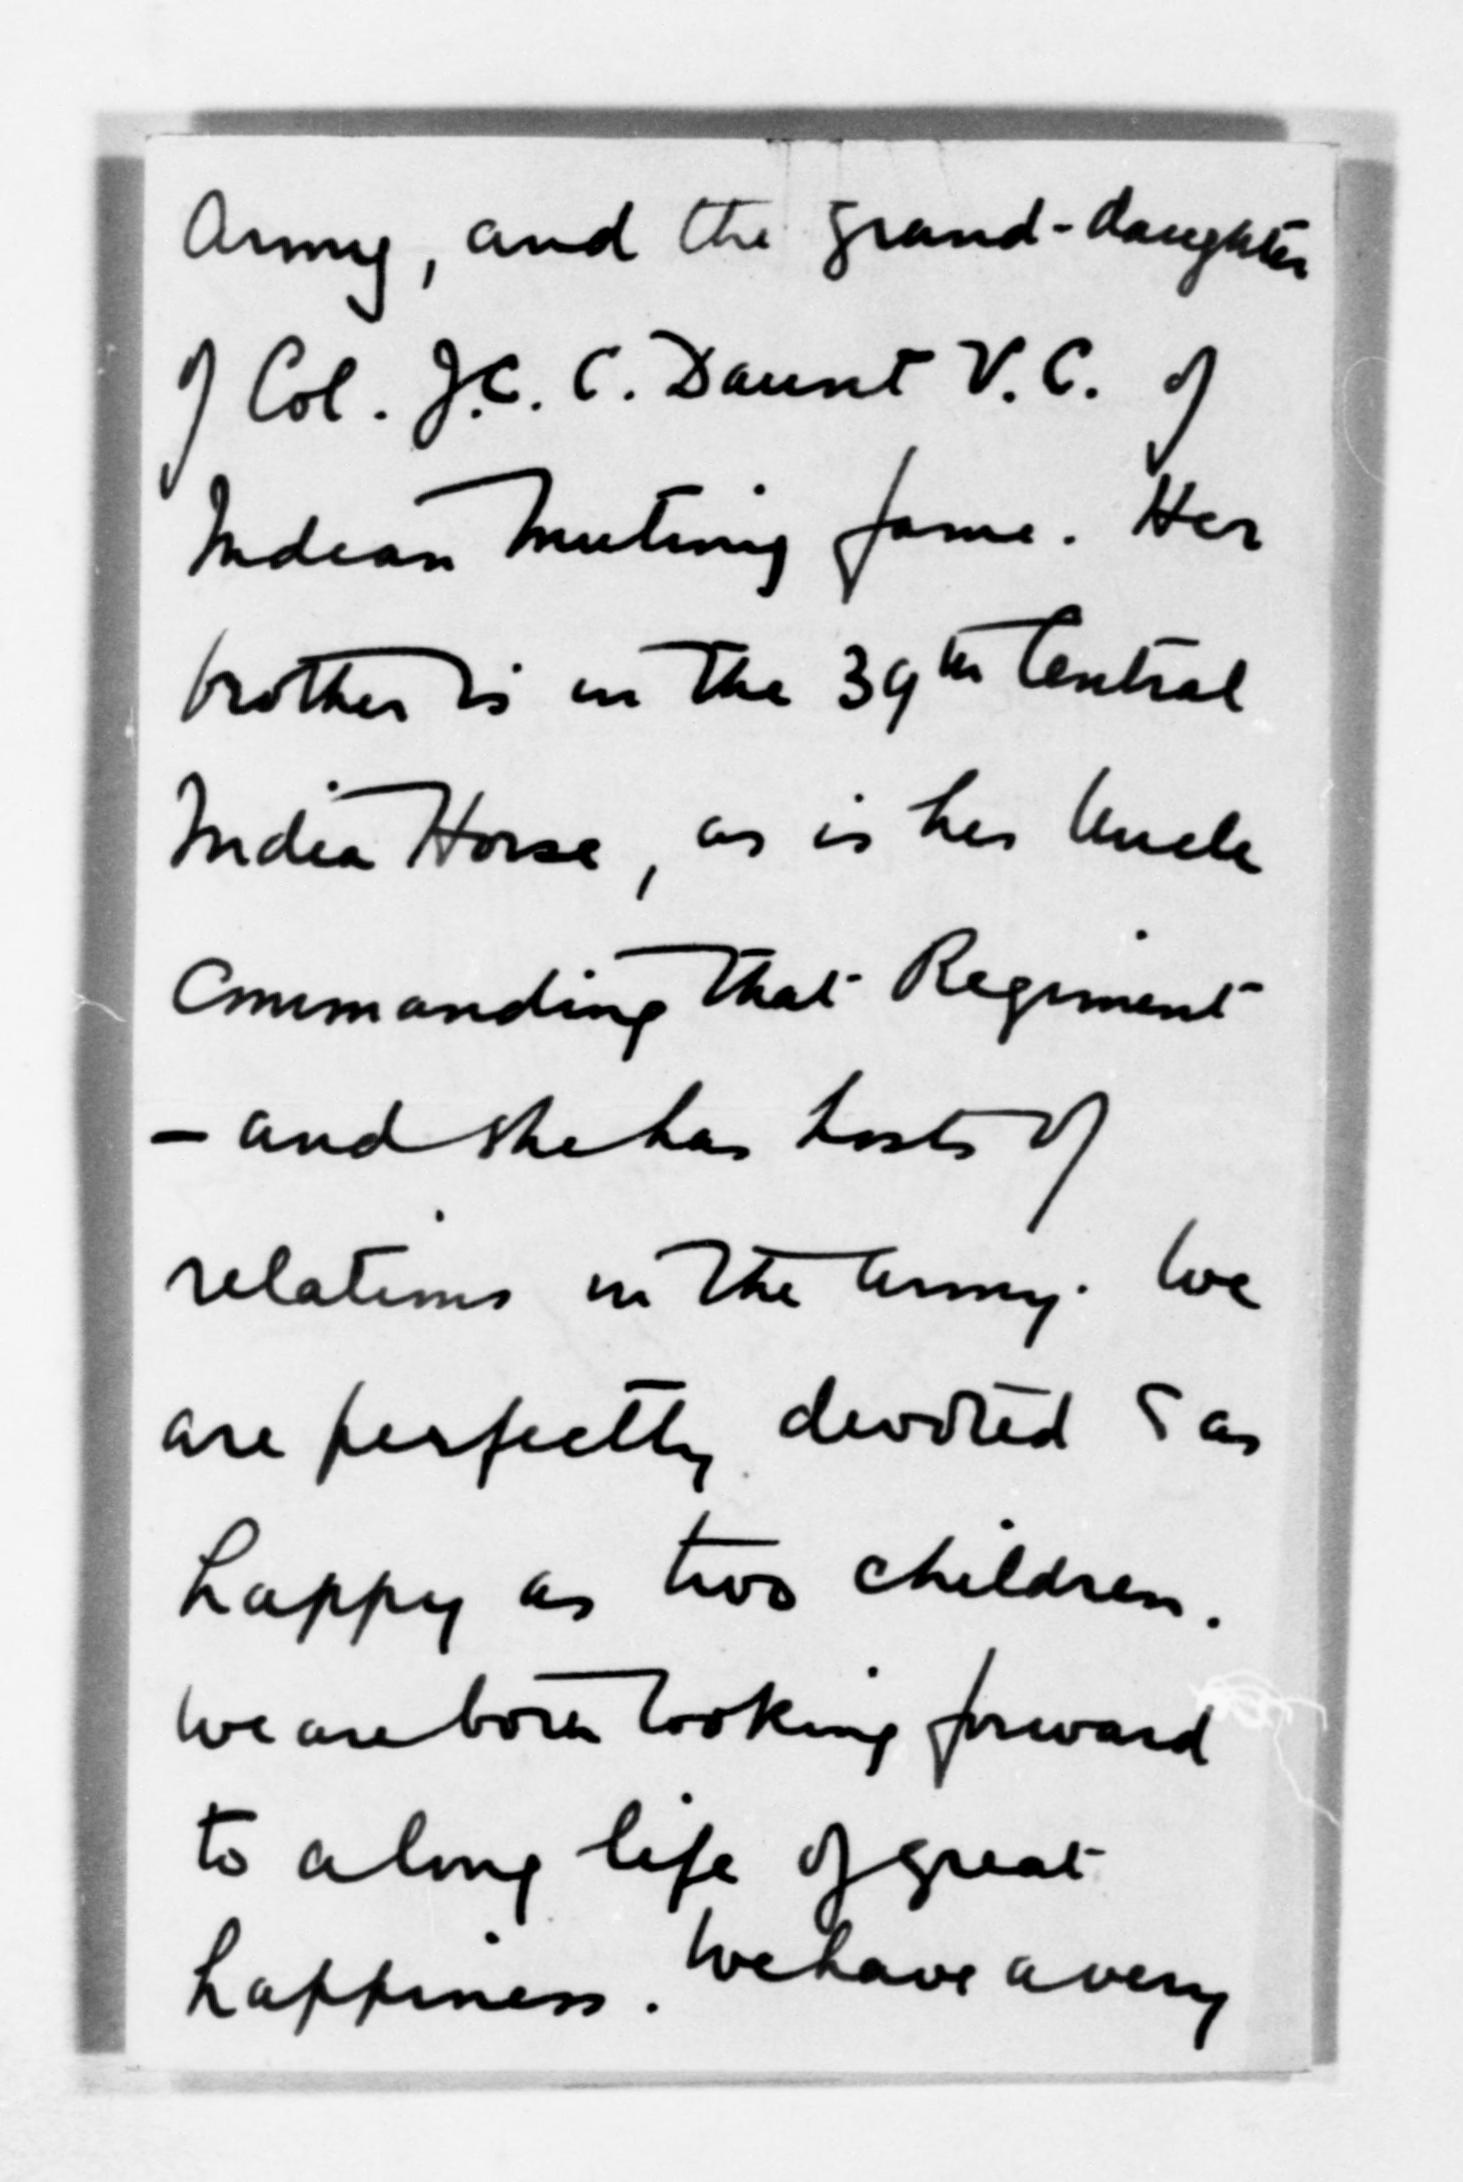 Army, and the grand-daughter
of Col. J.C.C. Daunt V.C. of
Indian Mutiny fame. Her
brother is in the 39th Central
India Horse, as is her Uncle
Commanding that Regiment
— and she has hosts of
relations in the Army. We
are perfectly devoted & as
happy as two children.
We are both looking forward
to a long life of great
happiness. We have a very